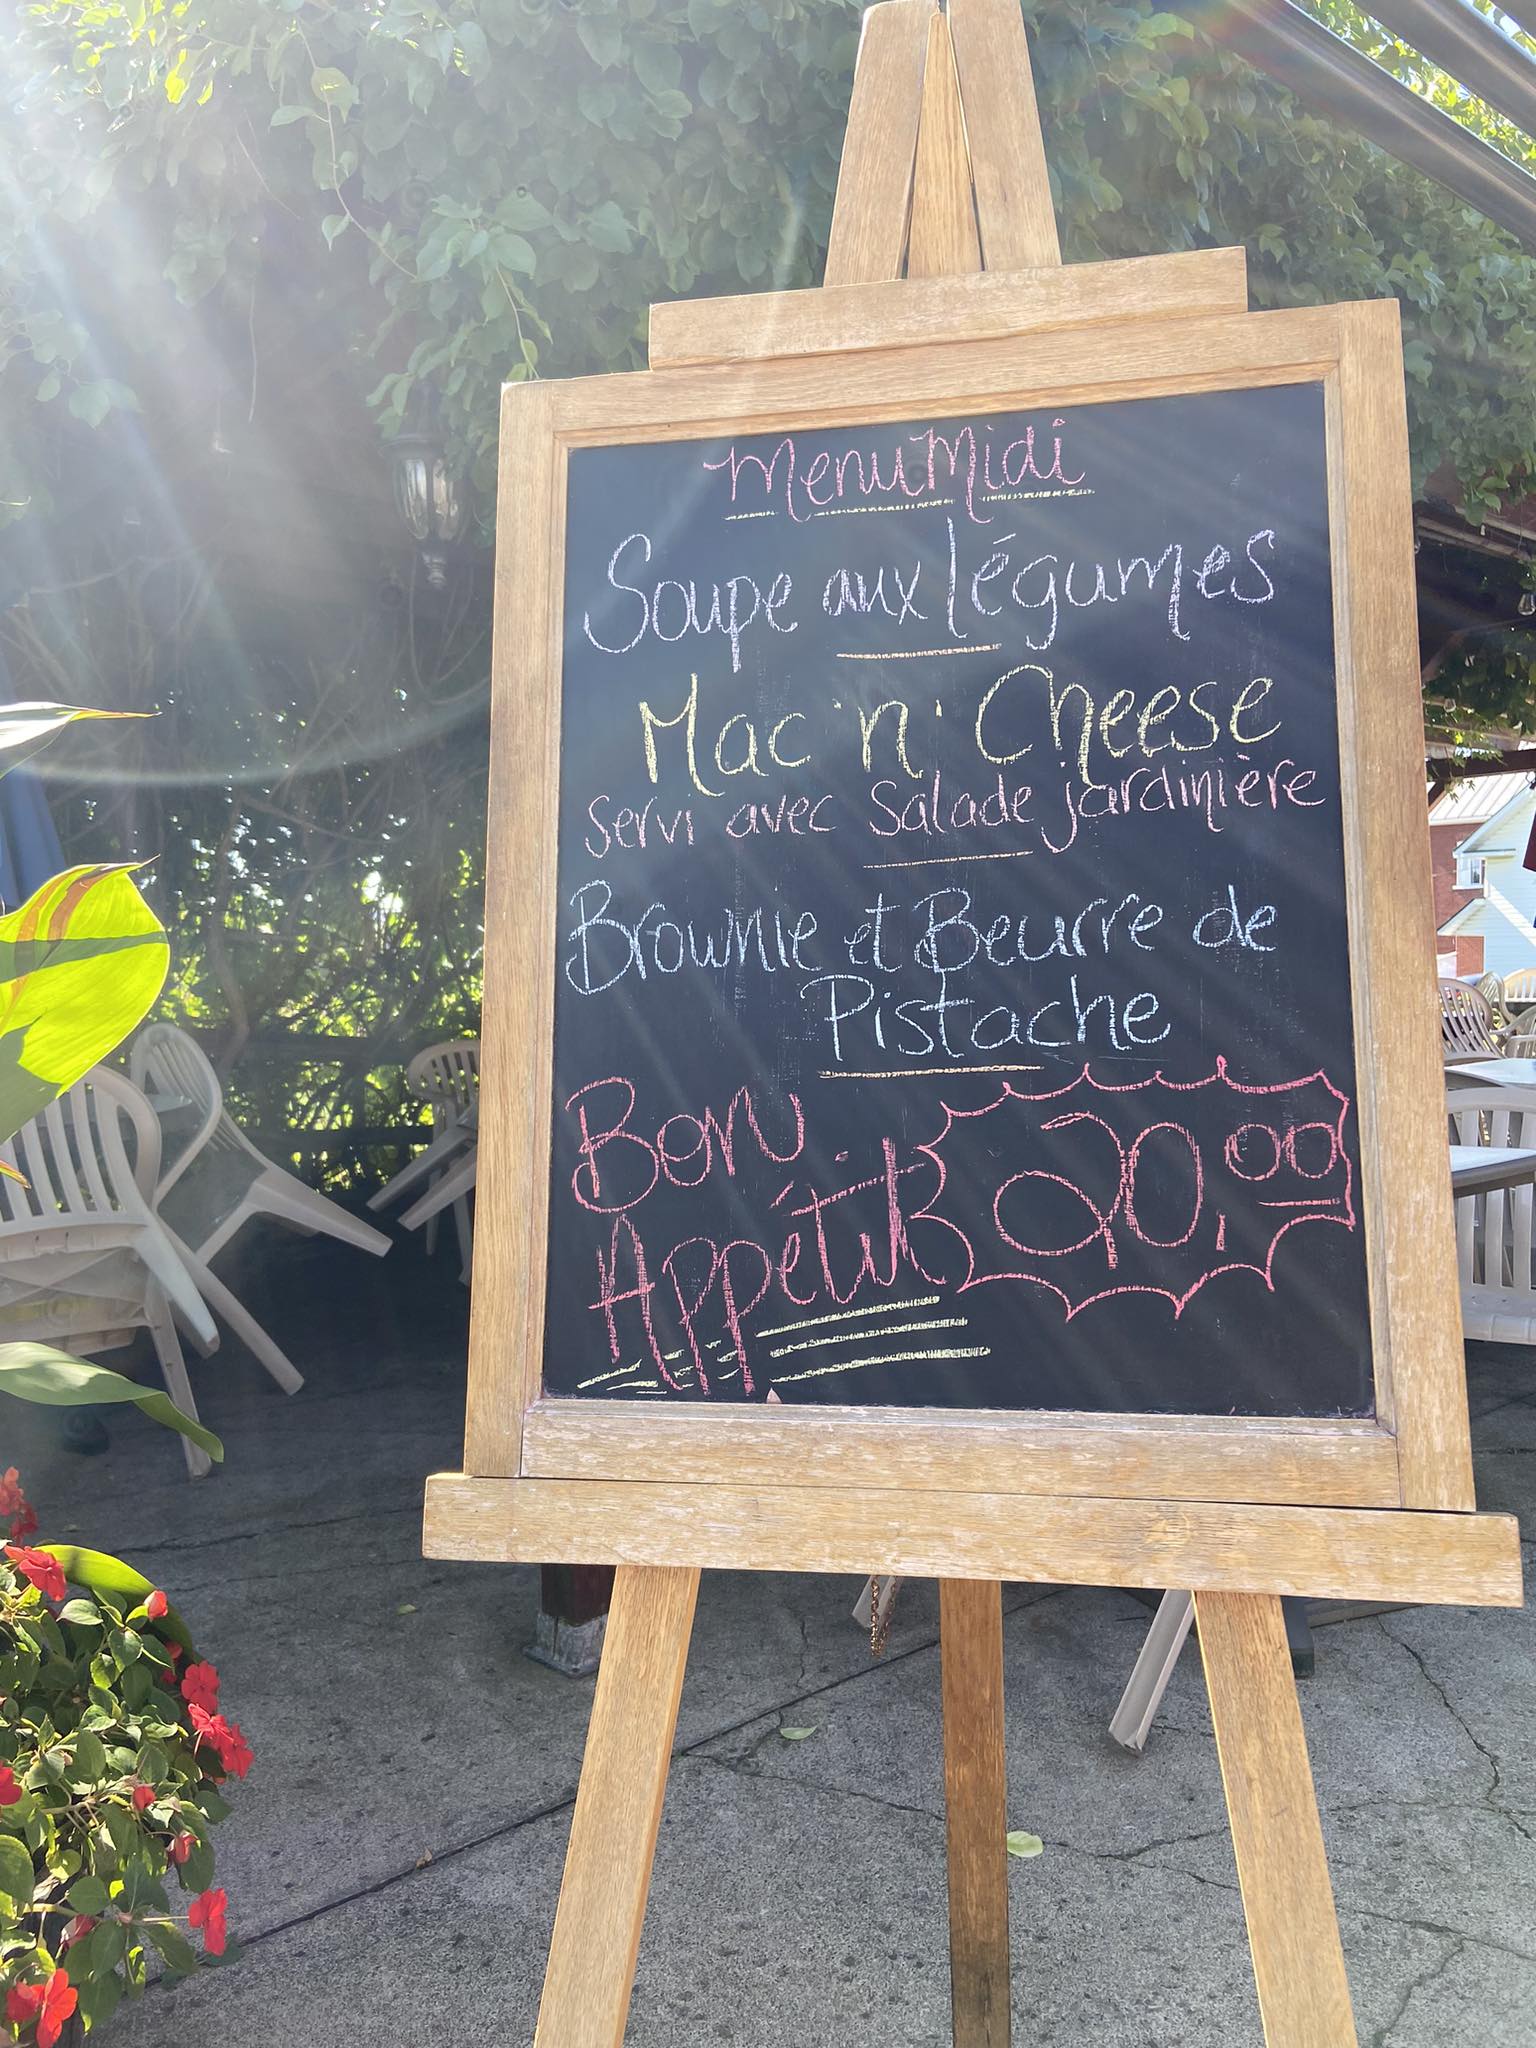 Menu Midi
Soupe aux légumes
Mac 'n' Cheese
servi avec salade jardinière
Brownie et Beurre de
Pistache
Bon
Appétit
20,00